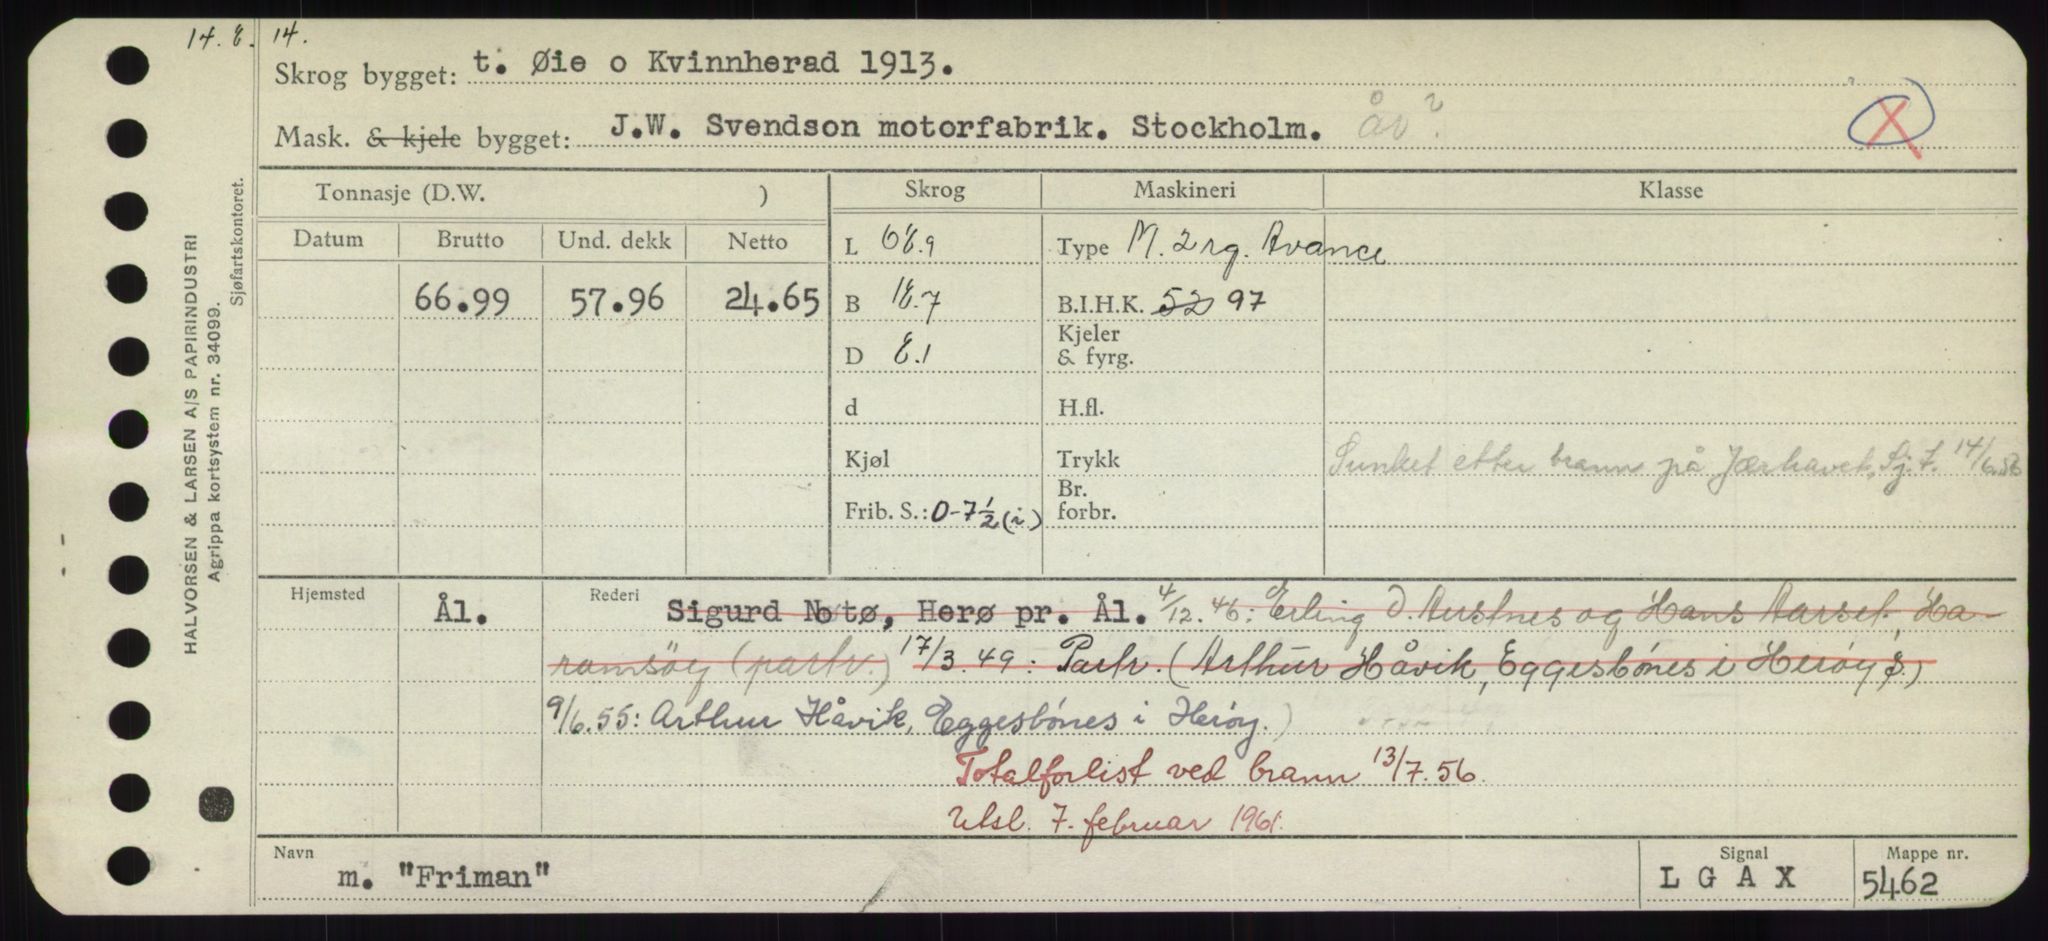 14. 8. 14.
Skrog bygget: t. Øie o Kvinnherad 1913.
Mask. & kjele bygget: J.W. Svendson motorfabrik. Stockholm. år ?
HALVORSEN & LARSEN A/S PAPIRINDUSTRI
Agrippa kortsystem nr. 34099.
Sjøfartskontoret.
Tonnasje (D.W. ) Skrog Maskineri Klasse
Datum Brutto Und. dekk Netto L 68.9 Type M. 2 rg. Avance
66.99 57.96 24.65 B 18.7 B.I.H.K. 52 97
Kjeler
D 8.1 & fyrg.
d H.fl.
Kjøl Trykk Sunket etter brann på Jærhavet, Sj. f. 14/6.56
Br.
Frib. S.: 0-7½ (i) forbr.
Hjemsted Ål. Rederi Sigurd Notø, Herø pr. Ål. 4/12.46: Erling D. Austnes og Hans Aarset, Ha-
ramsöy (partr.) 17/3.49: Partr. (Arthur Håvik, Eggesbónes i Heröy s.)
9/6.55: Arthur Håvik, Eggesbónes i Heröy.)
Totalforlist ved brann 13/7.56.
Utsl. 7. februar 1961.
Navn Signal Mappe nr.
m. "Friman" L G A X 5462